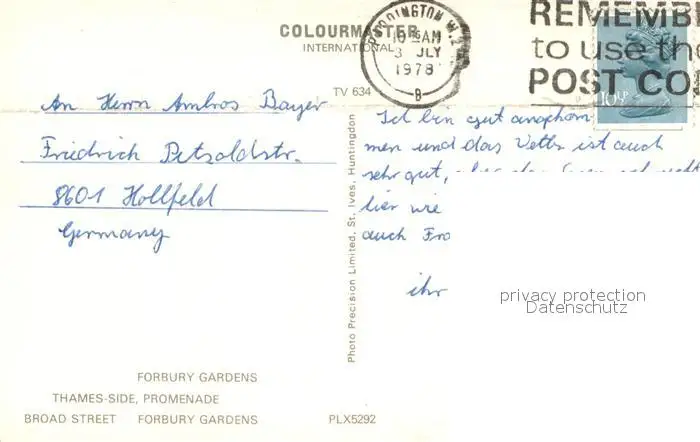 COLOURMASTER
INTERNATIONAL
PADDINGTON W.2
10 AM
3 JLY
1978
B
REMEMB
to use the
POST CO
10½P
TV 634
An Herrn Ambros Bayer
Friedrich Petzoldstr.
8601 Hollfeld
Germany
Photo Precision Limited, St. Ives, Huntingdon
Ich bin gut angekom
men und das Wetter ist auch
sehr gut,
hier wie
auch Fro
ihr
privacy protection
Datenschutz
FORBURY GARDENS
THAMES-SIDE, PROMENADE
BROAD STREET FORBURY GARDENS
PLX5292